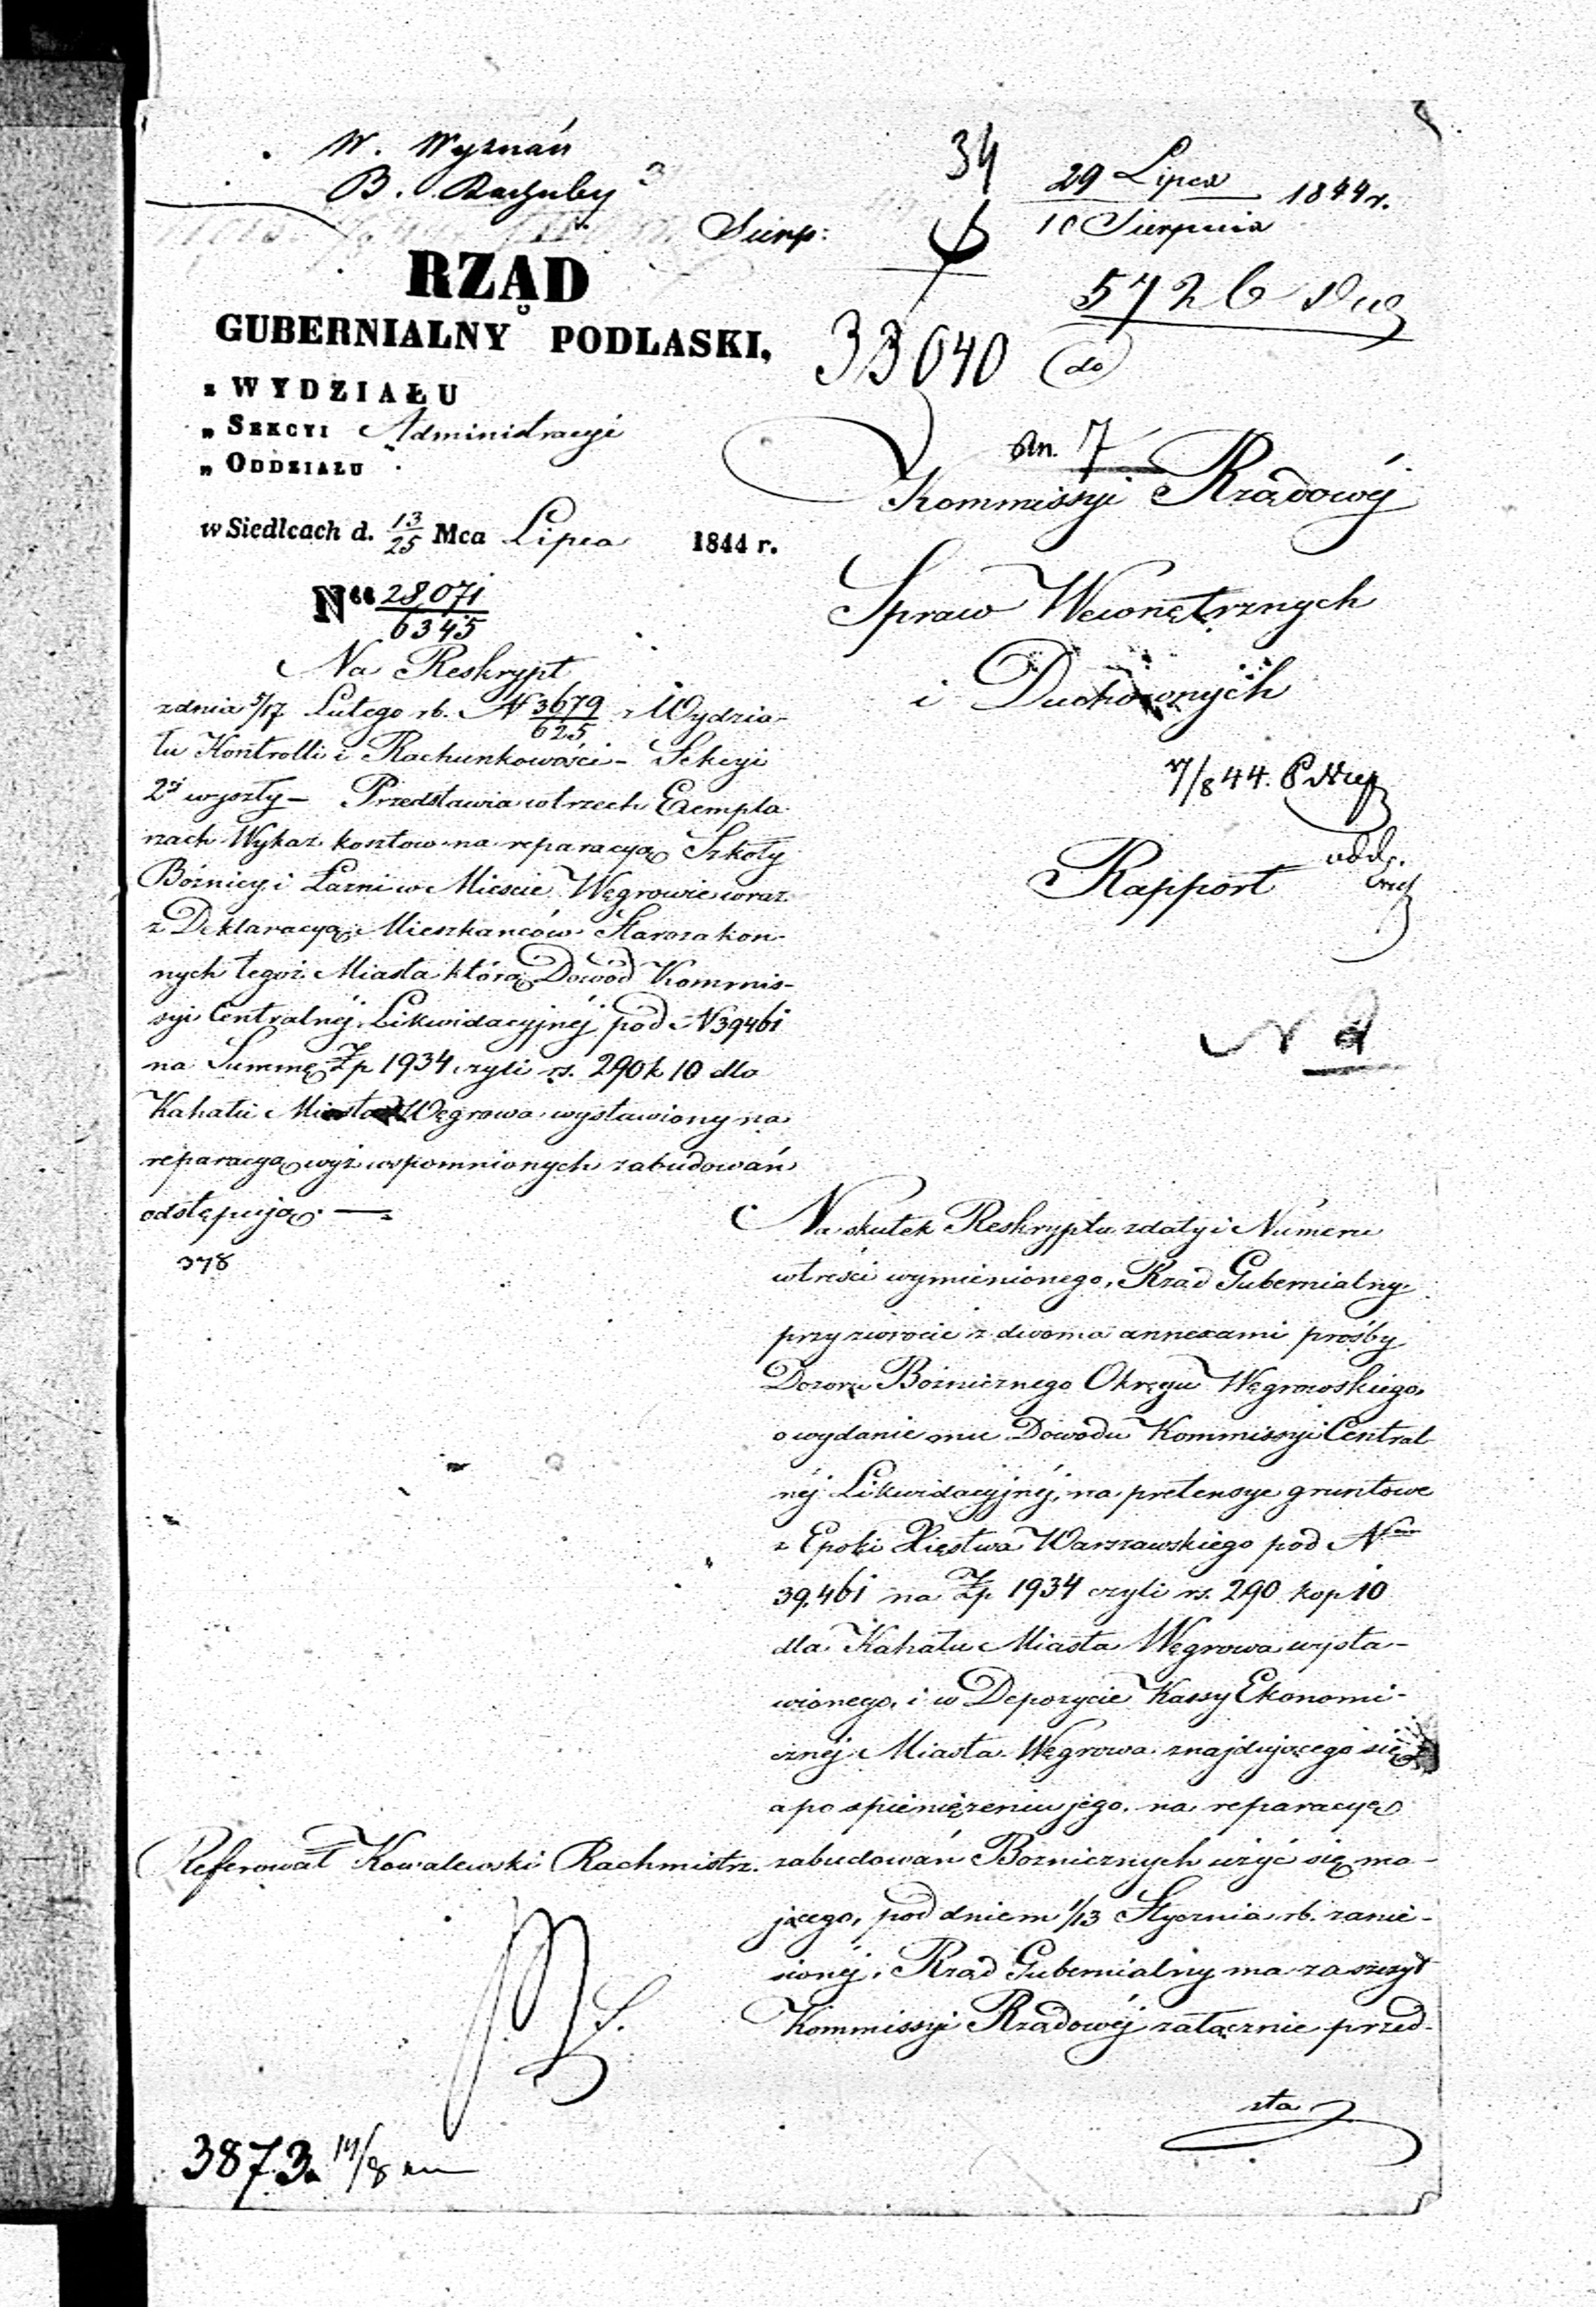 W. Wyznań
B. Rachuby
34
29 Lipca 1844 r.
10 Sierpnia
Sierp:
6
RZĄD
GUBERNIALNY PODLASKI,
5726
33040
(do)
z WYDZIAŁU
„ SEKCYI Administracyi
„ ODDZIAŁU
dn. 7
Kommissyi Rządowéj
w Siedlcach d. 13/25 Mca Lipca 1844 r.
Spraw Wewnętrznych
i Duchownych
Nr 28,071
6345
Na Reskrypt
z dnia 5/17 Lutego rb. N 3679/625 z Wydzia-
łu Kontrolli i Rachunkowości - Sekcyi
2éj wyszły - Przedstawia w trzech Exempla-
rzach Wykaz kosztow na reparacyą Szkoły
Bóżnicy i Łazni w Mieście Węgrowie wraz
z Deklaracyą Mieszkańców Starozakon-
nych tegoż Miasta którą Dowód Kommis-
syi Centralnéj Likwidacyjnéj pod N 39461
na Summę Zp 1934 czyli rs. 290 k 10 dla
Kahału Miasta Węgrowa wystawiony na
reparacyą wyż wspomnionych zabudowań
odstępują. —
378
7/8 44.
Rapport
Na skutek Reskryptu z daty i Numeru
w treści wymienionego, Rząd Gubernialny
przy zwrocie z dwoma annexami prośby
Dozoru Bożnicznego Okręgu Węgrowskiego,
o wydanie mu Dowodu Kommissyi Central
néj Likwidacyjnéj, na pretensye gruntowe
z Epoki Xięstwa Warszawskiego pod Nrem
39,461 na Zp 1934 czyli rs. 290 kop 10
dla Kahału Miasta Węgrowa wysta-
wionego, i w Depozycie Kassy Ekonomi-
cznéj Miasta Węgrowa znajdującego się
a po spieniężeniu jego, na reparacyę
zabudowań Bożnicznych użyć się ma-
jącego, pod dniem 1/13 Stycznia rb. zanie-
sionéj, Rząd Gubernialny ma zaszczyt
Kommissyi Rządowéj załącznie przed-
sta
Referował Kowalewski Rachmistrz.
3873. 14/8